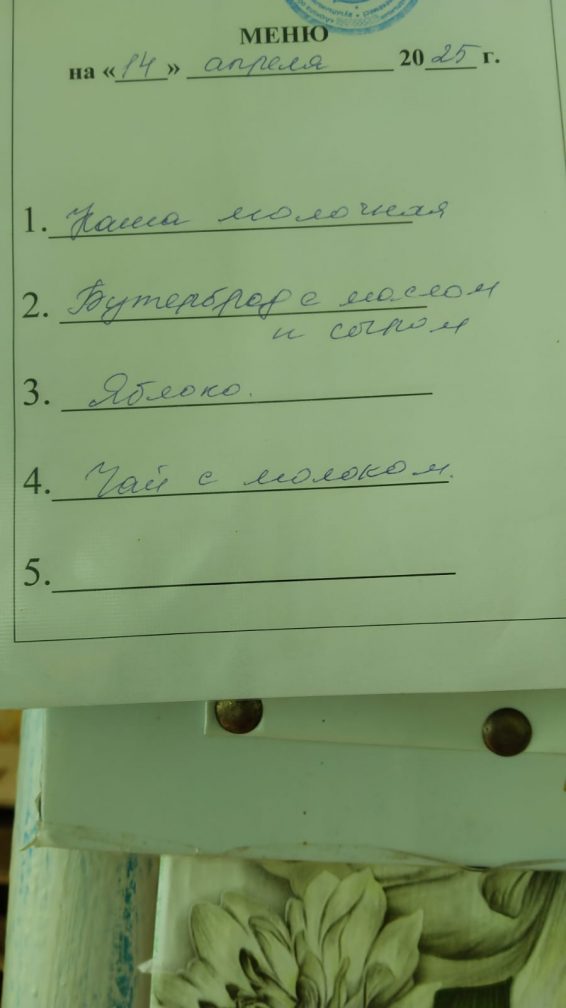 МЕНЮ
на «14» апреля 2025 г.
1. Каша молочная
2. Бутерброд с маслом
и сыром
3. Яблоко.
4. Чай с молоком.
5.